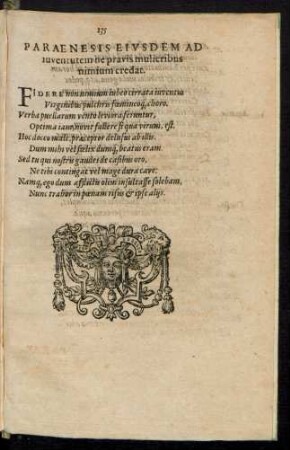 PARAENESIS EIVSDEM AD
iuventutem ne pravis mulieribus
nimium credat.
FIDERE nimium cirrata iuventa
Virginibus pulchris fœmineoq; choro.
Verba puellarum vento leviora feruntur,
Optima tunc novit fallere si qua veniri. est.
Hoc docui misere præceptor delusus ab illis.
Dum mihi vel felix dumq; beatus eram
Sed tu qui nostris gaudes de casibus oro,
Ne tibi contingat vel mage dura cave:
Namq; ego dum afflictis olim insultasse solebam,
Nunc trahor in pœnam risus & ipse alijs.